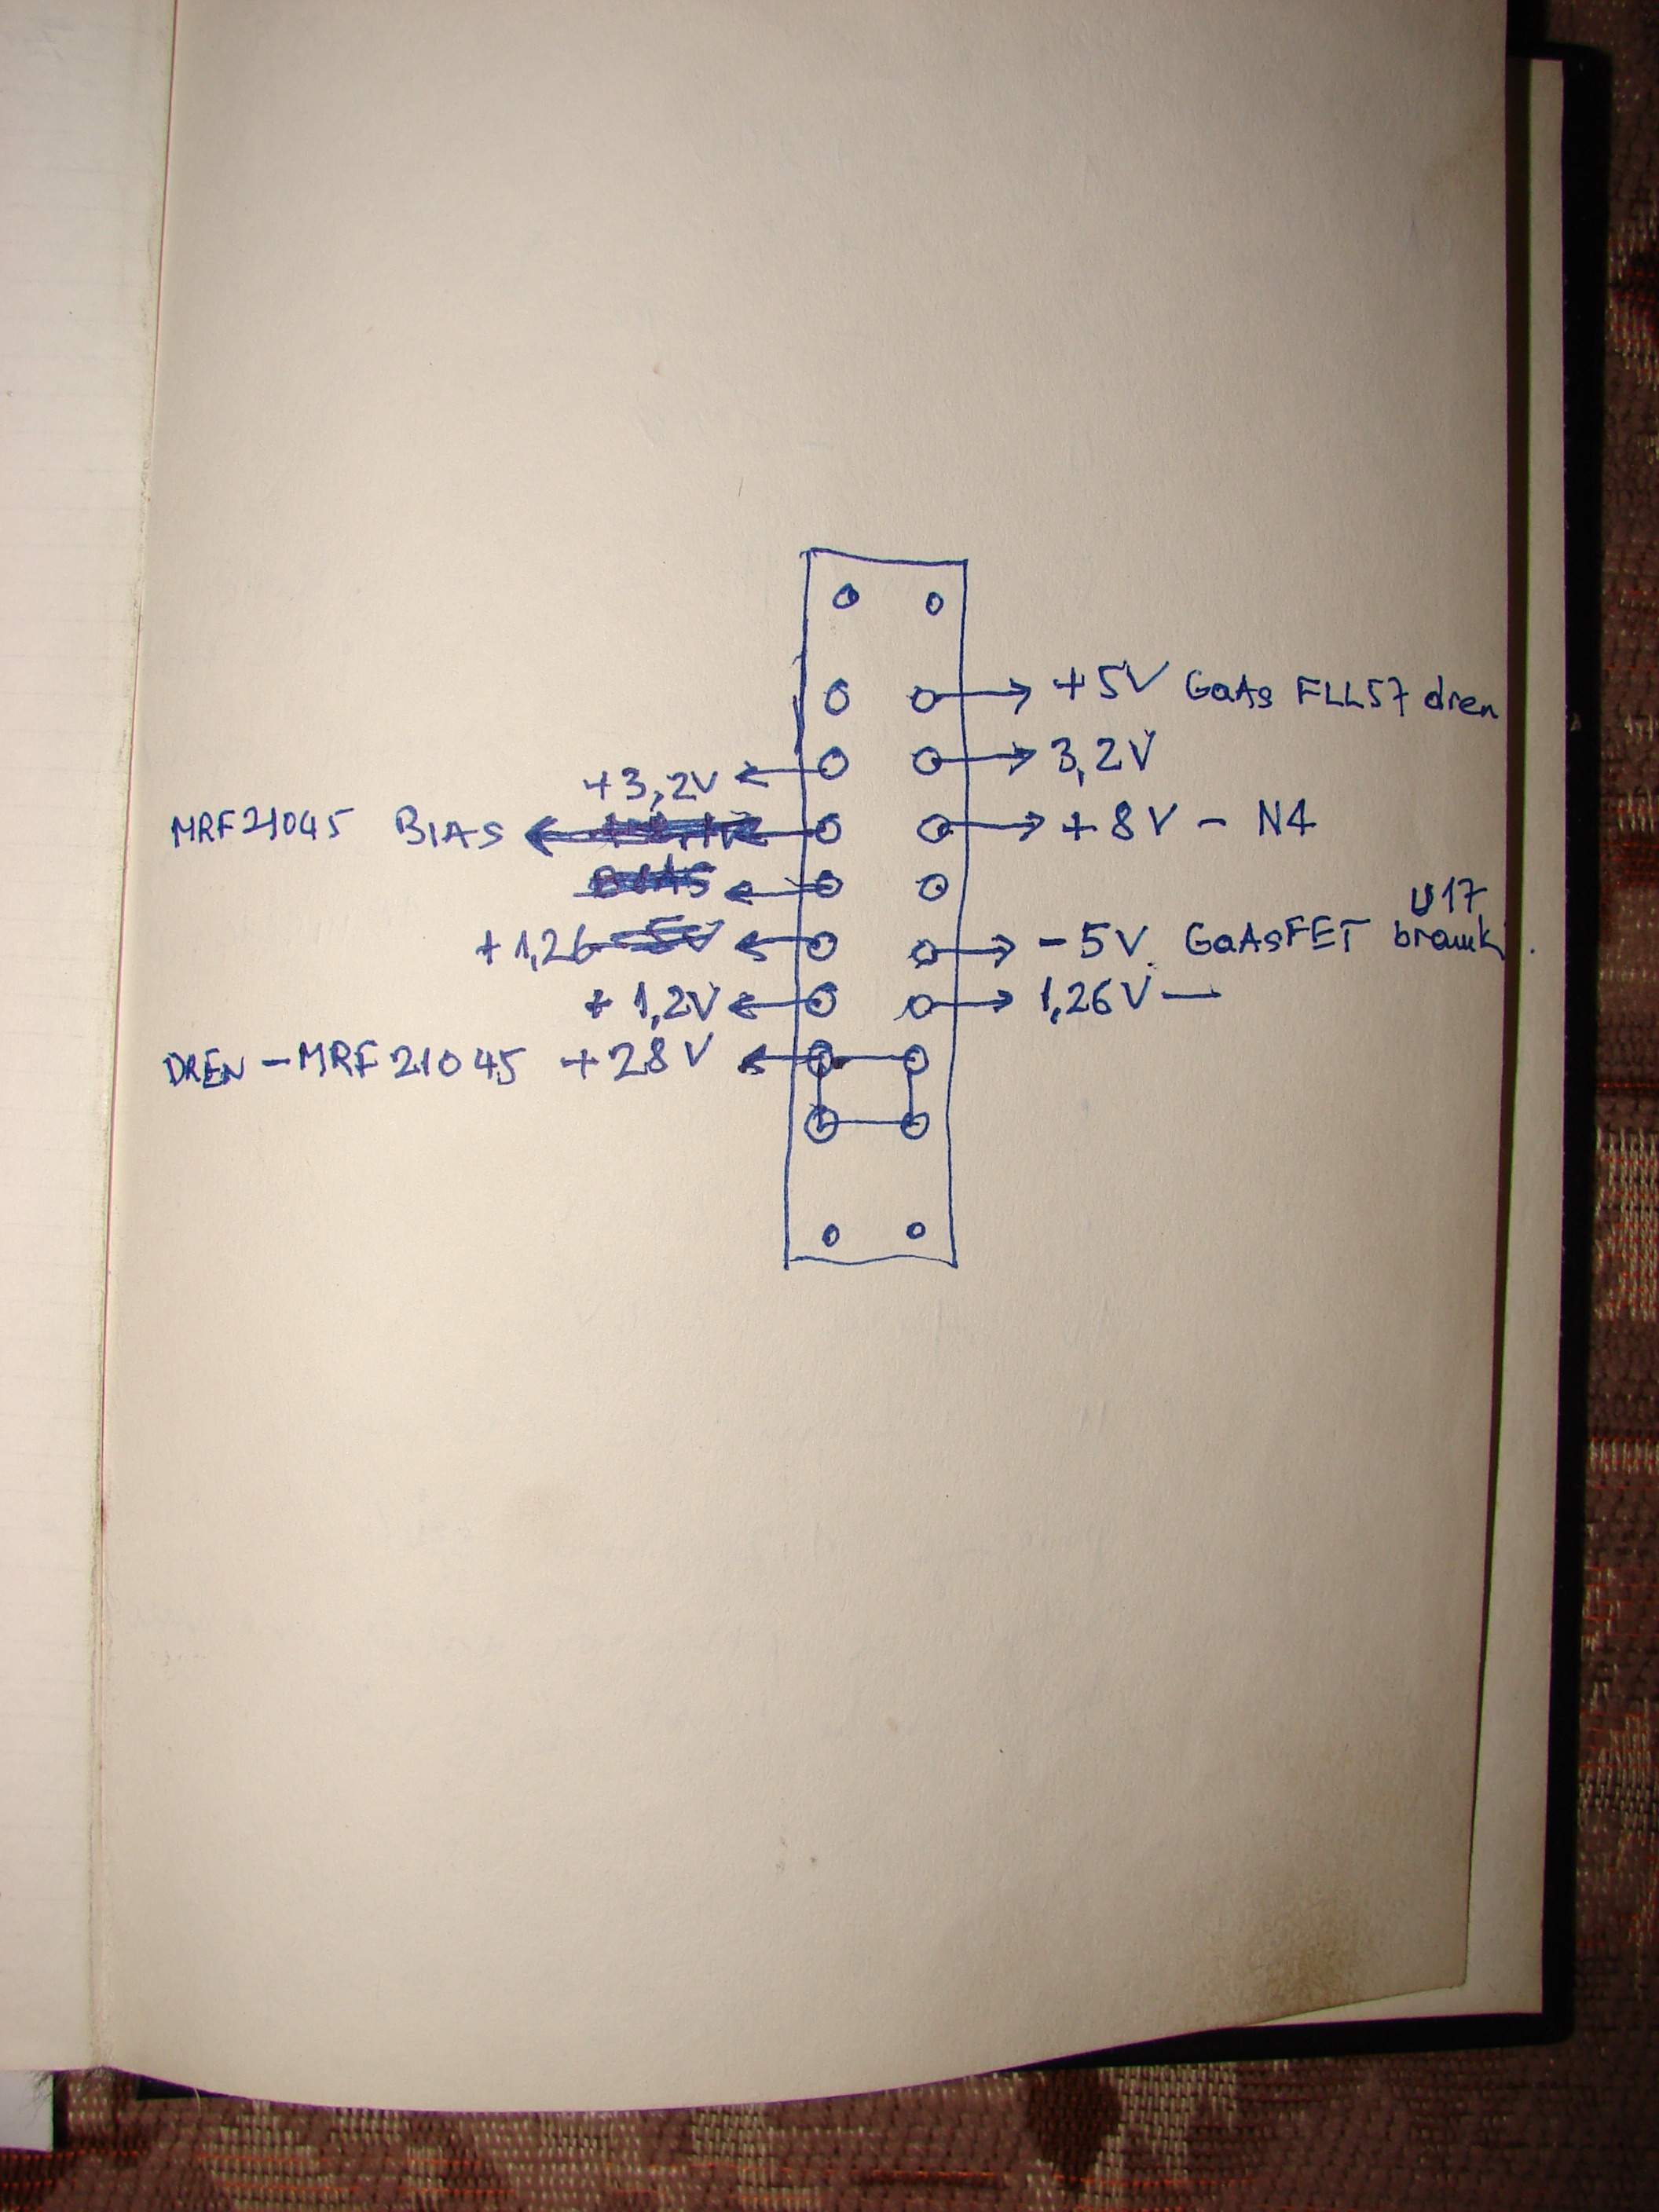 +5V GaAs FLL57 dren
+3,2V
3,2V
MRF21045 BIAS
+8V - N4
BIAS
U17
+1,26 -5V
-5V GaAsFET bramki
+1,2V
1,26V —
DREN - MRF21045 +28V